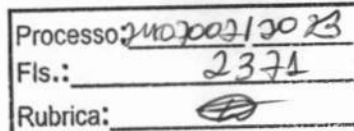 Processo: 2407002/2023
Fls.: 2371
Rubrica: